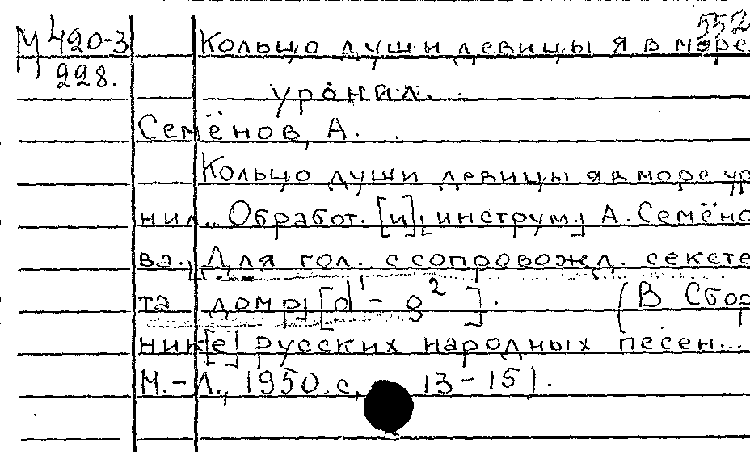 552
М 420-3 Кольцо души девицы я в море
228. уронил.
Семёнов, А.
Кольцо души девицы я в море ур
нил. Обработ. [и] инструм. А. Семёно
ва. Для гол. с сопровожд. сексте
та домр [d¹ - g²]. (В Сбор
ник[е] русских народных песен...
М.-Л., 1950. с. 13-15).